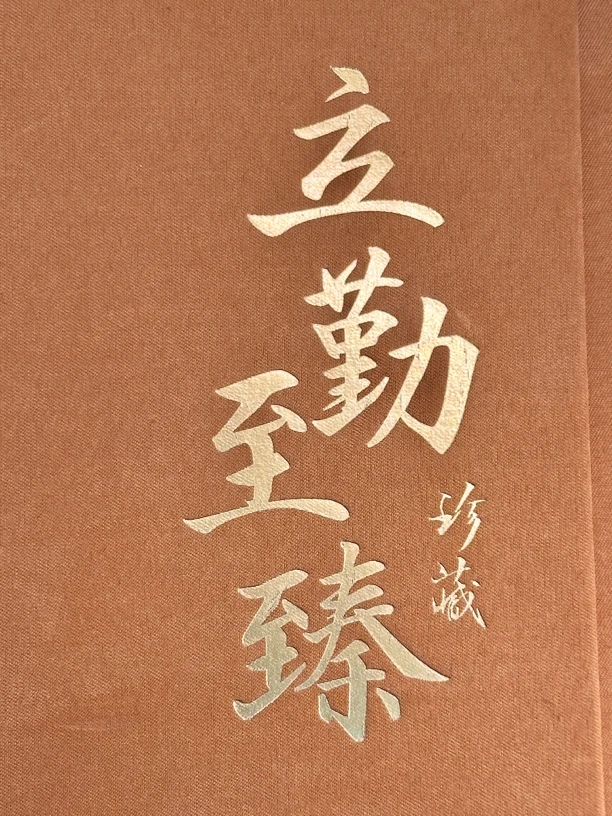 立勤至臻
珍藏